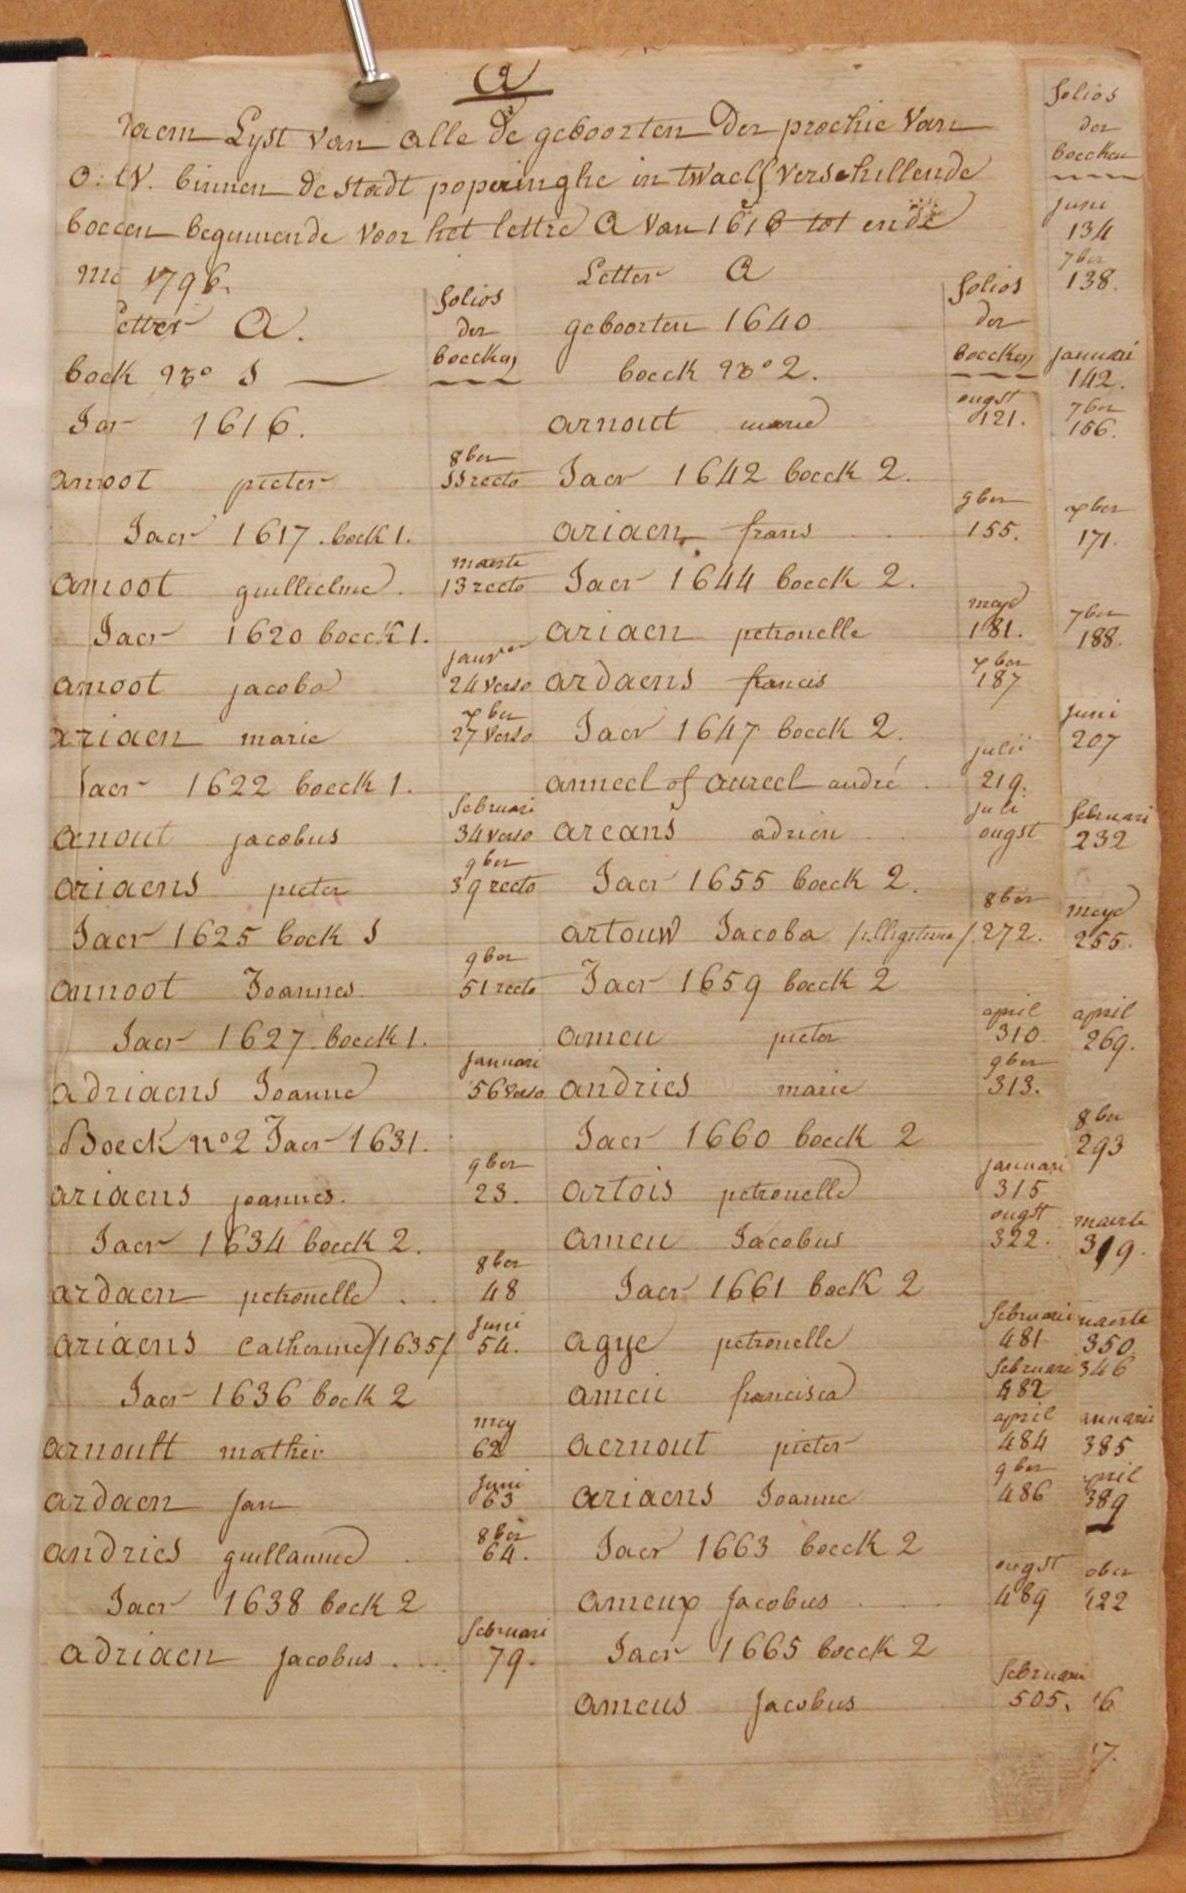 A
naem Lyst van alle de geboorten der prochie van
O: LV. binnen de stadt poperinghe in twaelf verschillende
boecken beginnende voor het lettre A van 1616 tot ende
met 1796.
Letter A.
folios
der
boecken
boek No 1
Jar 1616.
8ber
amoot pieter 11 recto
Jaer 1617. boek 1.
maerte
amoot guillielme. 13 recto
Jaer 1620 boeck 1.
janver
amoot jacoba 24 verso
7ber
ariaen marie 27 verso
Jaer 1622 boeck 1.
februari
anout jacobus 34 verso
9ber
ariaens pieter 39 recto
Jaer 1625 boek 1
9ber
annoot Joannes 51 recto
Jaer 1627 boeck 1.
januari
adriaens Joanne 56 verso
Boeck no 2 Jaer 1631.
9ber
ariaens joannes. 23.
Jaer 1634 boeck 2.
8ber
ardaen petronelle . . 48
juni
ariaens Catherine /1635/ 54.
Jaer 1636 boek 2
mey
arnoutt mathier 62
Juni
ardaen jan 63
8ber
andries guillaume . 64.
Jaer 1638 boek 2
februari
adriaen jacobus . . . 79.
Letter A
folios
der
boecken
geboorten 1640
boeck No 2.
ougst
arnout marie 121.
Jaer 1642 boeck 2.
9ber
ariaen frans . . 155.
Jaer 1644 boeck 2.
meye
ariaen petronelle 181.
7ber
ardaens francis 187
Jaer 1647 boeck 2.
julii
anneel of aureel andré . 219.
juli
areans adrien . . ougst
Jaer 1655 boeck 2.
8ber
artouw Jacoba /illigitime/ 272.
Jaer 1659 boeck 2
april
ameu pieter 310
9ber
andries marie 313.
Jaer 1660 boeck 2
januari
artois petronelle 315
ougst
ameu Jacobus 322.
Jaer 1661 boeK 2
februari
agye petronelle 481
februari
ameu francisca 482
april
aernout pieter 484
9ber
ariaens Joanne 486
Jaer 1663 boeck 2
ougst
ameux jacobus . . . . 489
Jaer 1665 boeck 2
februari
ameus jacobus 505.
folios
der
boecken
juni
134
7ber
138.
januari
142.
7ber
156.
7ber
171.
7ber
188.
juni
207
februari
232
meye
255.
april
269.
8ber
293
maerte
319.
maerte
350.
346
anuarii
385
april
389
ober
422
6
7.